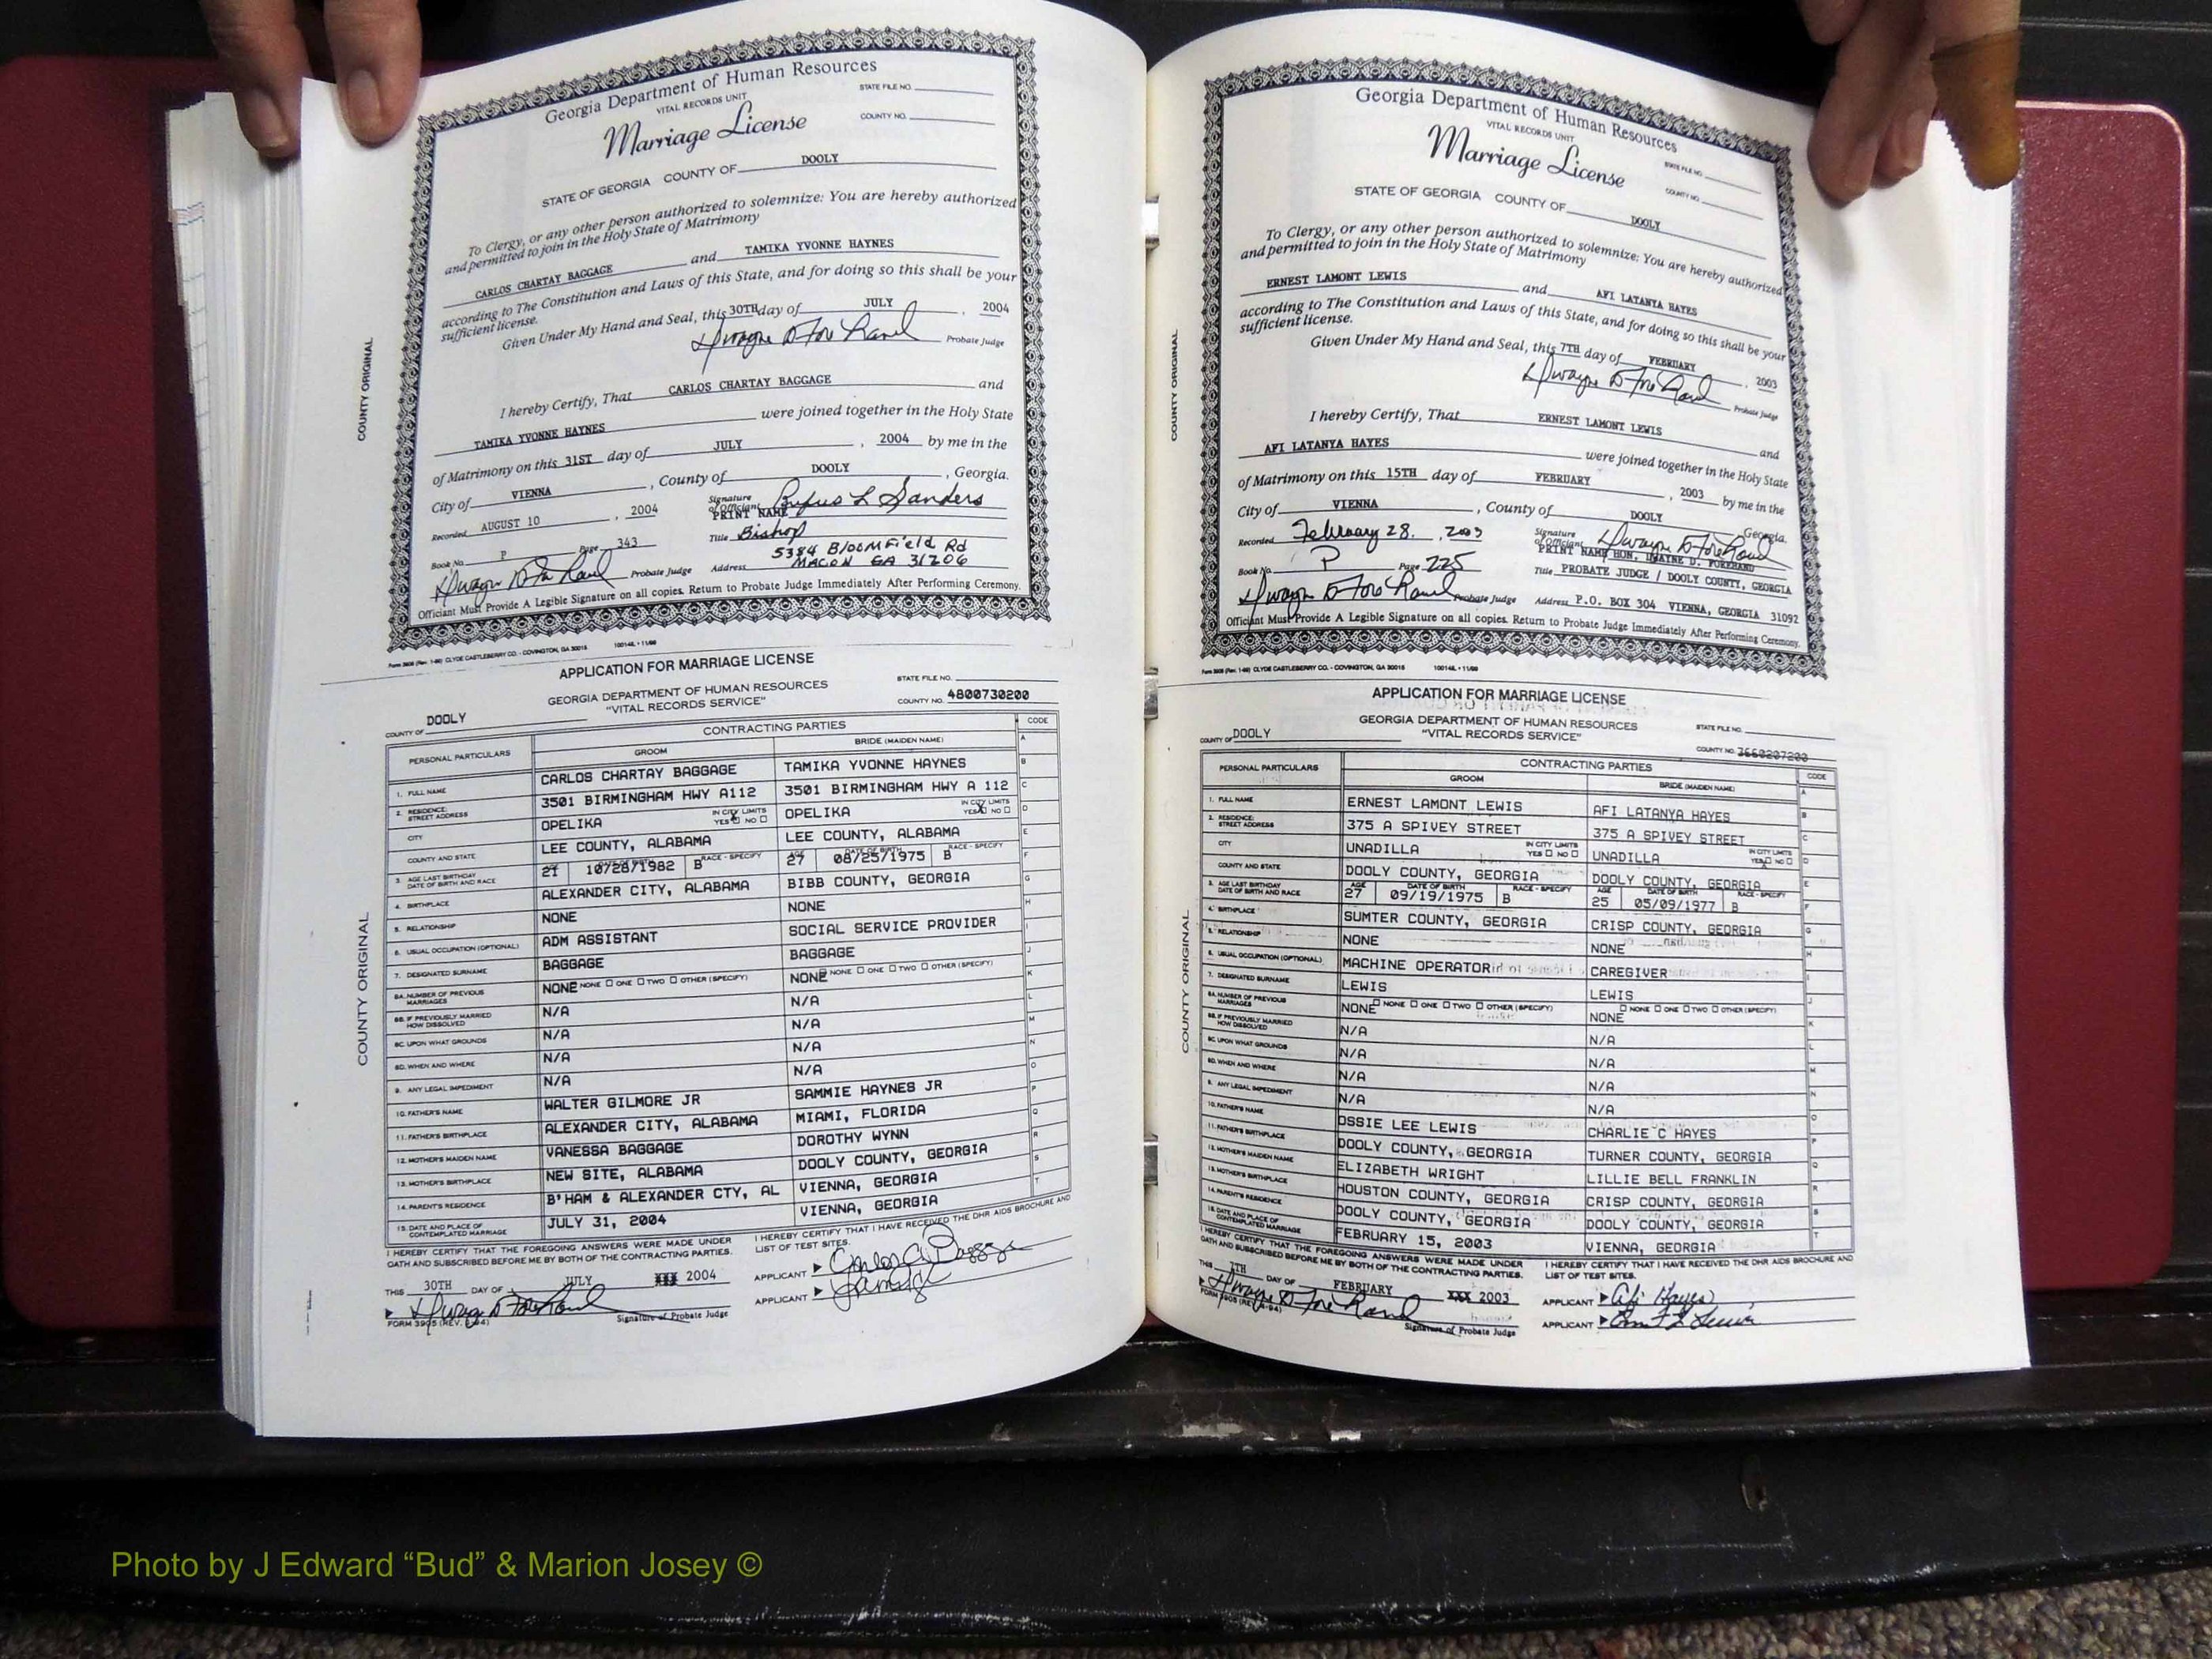 Georgia Department of Human Resources
VITAL RECORDS UNIT
STATE FILE NO.
Marriage License
COUNTY NO.
STATE OF GEORGIA COUNTY OF DOOLY
To Clergy, or any other person authorized to solemnize: You are hereby authorized
and permitted to join in the Holy State of Matrimony
CARLOS CHARTAY BAGGAGE and TAMIKA YVONNE HAYNES
according to The Constitution and Laws of this State, and for doing so this shall be your
sufficient license.
Given Under My Hand and Seal, this 30TH day of JULY, 2004
Probate Judge
I hereby Certify, That CARLOS CHARTAY BAGGAGE and
TAMIKA YVONNE HAYNES were joined together in the Holy State
of Matrimony on this 31ST day of JULY, 2004 by me in the
City of VIENNA, County of DOOLY, Georgia.
Recorded AUGUST 10, 2004 Signature of Officiant Rufus L Sanders
PRINT NAME
Book No. P Page 343 Title Bishop
Probate Judge Address 5384 Bloomfield Rd
Macon GA 31206
Officiant Must Provide A Legible Signature on all copies. Return to Probate Judge Immediately After Performing Ceremony.
COUNTY ORIGINAL
Form 3908 (Rev. 1-96) CLYDE CASTLEBERRY CO. - COVINGTON, GA 30015 10014L • 11/98
APPLICATION FOR MARRIAGE LICENSE
GEORGIA DEPARTMENT OF HUMAN RESOURCES
"VITAL RECORDS SERVICE"
STATE FILE NO.
COUNTY NO. 4800730200
COUNTY OF DOOLY
PERSONAL PARTICULARS CONTRACTING PARTIES CODE
GROOM BRIDE (MAIDEN NAME) A
1. FULL NAME CARLOS CHARTAY BAGGAGE TAMIKA YVONNE HAYNES B
2. RESIDENCE: STREET ADDRESS 3501 BIRMINGHAM HWY A112 3501 BIRMINGHAM HWY A 112 C
CITY OPELIKA IN CITY LIMITS YES ☒ NO ☐ OPELIKA IN CITY LIMITS YES ☒ NO ☐ D
COUNTY AND STATE LEE COUNTY, ALABAMA LEE COUNTY, ALABAMA E
3. AGE LAST BIRTHDAY DATE OF BIRTH AND RACE AGE 21 DATE OF BIRTH 10/28/1982 B RACE - SPECIFY AGE 27 DATE OF BIRTH 08/25/1975 B RACE - SPECIFY F
4. BIRTHPLACE ALEXANDER CITY, ALABAMA BIBB COUNTY, GEORGIA G
5. RELATIONSHIP NONE NONE H
6. USUAL OCCUPATION (OPTIONAL) ADM ASSISTANT SOCIAL SERVICE PROVIDER I
7. DESIGNATED SURNAME BAGGAGE BAGGAGE J
8A. NUMBER OF PREVIOUS MARRIAGES NONE ☐ NONE ☐ ONE ☐ TWO ☐ OTHER (SPECIFY) NONE ☐ NONE ☐ ONE ☐ TWO ☐ OTHER (SPECIFY) K
8B. IF PREVIOUSLY MARRIED HOW DISSOLVED N/A N/A L
8C. UPON WHAT GROUNDS N/A N/A M
8D. WHEN AND WHERE N/A N/A N
9. ANY LEGAL IMPEDIMENT N/A N/A O
10. FATHER'S NAME WALTER GILMORE JR SAMMIE HAYNES JR P
11. FATHER'S BIRTHPLACE ALEXANDER CITY, ALABAMA MIAMI, FLORIDA Q
12. MOTHER'S MAIDEN NAME VANESSA BAGGAGE DOROTHY WYNN R
13. MOTHER'S BIRTHPLACE NEW SITE, ALABAMA DOOLY COUNTY, GEORGIA S
14. PARENT'S RESIDENCE B'HAM & ALEXANDER CTY, AL VIENNA, GEORGIA T
15. DATE AND PLACE OF CONTEMPLATED MARRIAGE JULY 31, 2004 VIENNA, GEORGIA
I HEREBY CERTIFY THAT THE FOREGOING ANSWERS WERE MADE UNDER
OATH AND SUBSCRIBED BEFORE ME BY BOTH OF THE CONTRACTING PARTIES.
I HEREBY CERTIFY THAT I HAVE RECEIVED THE DHR AIDS BROCHURE AND
LIST OF TEST SITES.
THIS 30TH DAY OF JULY XXX 2004
APPLICANT Carlos C Baggage
APPLICANT
FORM 3905 (REV. 8-94) Signature of Probate Judge
COUNTY ORIGINAL
Georgia Department of Human Resources
VITAL RECORDS UNIT
Marriage License
STATE FILE NO.
COUNTY NO.
STATE OF GEORGIA COUNTY OF DOOLY
To Clergy, or any other person authorized to solemnize: You are hereby authorized
and permitted to join in the Holy State of Matrimony
ERNEST LAMONT LEWIS and AFI LATANYA HAYES
according to The Constitution and Laws of this State, and for doing so this shall be your
sufficient license.
Given Under My Hand and Seal, this 7TH day of FEBRUARY, 2003
Probate Judge
I hereby Certify, That ERNEST LAMONT LEWIS and
AFI LATANYA HAYES were joined together in the Holy State
of Matrimony on this 15TH day of FEBRUARY, 2003 by me in the
City of VIENNA, County of DOOLY Georgia.
Recorded February 28, 2003 Signature of Officiant
PRINT NAME HON. DWAYNE D. FOREHAND
Book No. P Page 225 Title PROBATE JUDGE / DOOLY COUNTY, GEORGIA
Probate Judge Address P.O. BOX 304 VIENNA, GEORGIA 31092
Officiant Must Provide A Legible Signature on all copies. Return to Probate Judge Immediately After Performing Ceremony.
COUNTY ORIGINAL
Form 3908 (Rev. 1-96) CLYDE CASTLEBERRY CO. - COVINGTON, GA 30015 10014L • 11/98
APPLICATION FOR MARRIAGE LICENSE
GEORGIA DEPARTMENT OF HUMAN RESOURCES
"VITAL RECORDS SERVICE"
STATE FILE NO.
COUNTY OF DOOLY
COUNTY NO. 3660207200
PERSONAL PARTICULARS CONTRACTING PARTIES CODE
GROOM BRIDE (MAIDEN NAME) A
1. FULL NAME ERNEST LAMONT LEWIS AFI LATANYA HAYES B
2. RESIDENCE: STREET ADDRESS 375 A SPIVEY STREET 375 A SPIVEY STREET C
CITY UNADILLA IN CITY LIMITS YES ☐ NO ☐ UNADILLA IN CITY LIMITS YES ☒ NO ☐ D
COUNTY AND STATE DOOLY COUNTY, GEORGIA DOOLY COUNTY, GEORGIA E
3. AGE LAST BIRTHDAY DATE OF BIRTH AND RACE AGE 27 DATE OF BIRTH 09/19/1975 RACE - SPECIFY B AGE 25 DATE OF BIRTH 05/09/1977 RACE - SPECIFY B F
4. BIRTHPLACE SUMTER COUNTY, GEORGIA CRISP COUNTY, GEORGIA G
5. RELATIONSHIP NONE NONE H
6. USUAL OCCUPATION (OPTIONAL) MACHINE OPERATOR CAREGIVER I
7. DESIGNATED SURNAME LEWIS LEWIS J
8A. NUMBER OF PREVIOUS MARRIAGES NONE ☐ NONE ☐ ONE ☐ TWO ☐ OTHER (SPECIFY) NONE ☐ NONE ☐ ONE ☐ TWO ☐ OTHER (SPECIFY) K
8B. IF PREVIOUSLY MARRIED HOW DISSOLVED N/A N/A L
8C. UPON WHAT GROUNDS N/A N/A M
8D. WHEN AND WHERE N/A N/A N
9. ANY LEGAL IMPEDIMENT N/A N/A O
10. FATHER'S NAME OSSIE LEE LEWIS CHARLIE C HAYES P
11. FATHER'S BIRTHPLACE DOOLY COUNTY, GEORGIA TURNER COUNTY, GEORGIA Q
12. MOTHER'S MAIDEN NAME ELIZABETH WRIGHT LILLIE BELL FRANKLIN R
13. MOTHER'S BIRTHPLACE HOUSTON COUNTY, GEORGIA CRISP COUNTY, GEORGIA S
14. PARENT'S RESIDENCE DOOLY COUNTY, GEORGIA DOOLY COUNTY, GEORGIA T
15. DATE AND PLACE OF CONTEMPLATED MARRIAGE FEBRUARY 15, 2003 VIENNA, GEORGIA
I HEREBY CERTIFY THAT THE FOREGOING ANSWERS WERE MADE UNDER
OATH AND SUBSCRIBED BEFORE ME BY BOTH OF THE CONTRACTING PARTIES.
I HEREBY CERTIFY THAT I HAVE RECEIVED THE DHR AIDS BROCHURE AND
LIST OF TEST SITES.
THIS 7TH DAY OF FEBRUARY XXX 2003
APPLICANT Afi Hayes
APPLICANT
Signature of Probate Judge
COUNTY ORIGINAL
Photo by J Edward “Bud” & Marion Josey ©